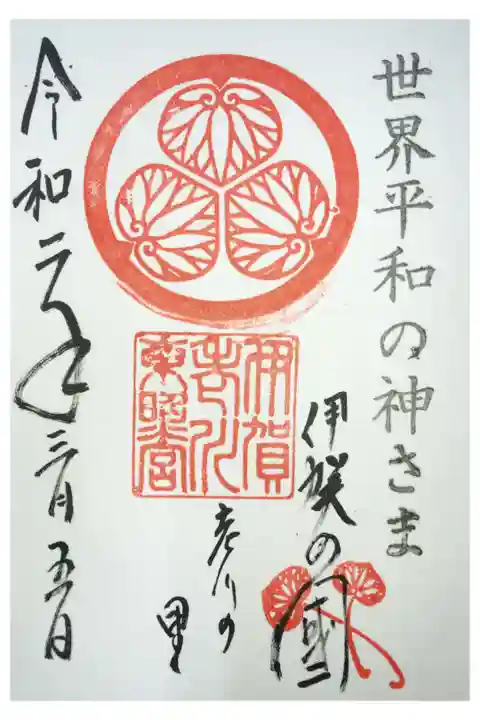 世界平和の神さま
伊賀の國
老川の
里
伊賀
老川
東照宮
令和二年三月五日